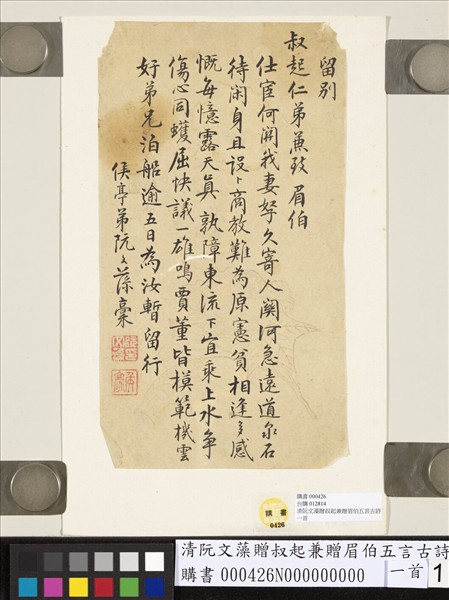 留別
叔起仁弟兼致眉伯
仕宦何關我妻孥久寄人關河急遠道泉石
待閑身且設卜商教難為原憲貧相逢多感
慨每憶露天真孰障東流下宜乘上水爭
傷心同蠖屈快議一雄鳴賈董皆模範機雲
好弟兄泊船逾五日為汝暫留行
侯亭弟阮文藻稾
購書
0426
購書 000426
台購 012814
清阮文藻贈叔起兼贈眉伯五言古詩
一首
清阮文藻贈叔起兼贈眉伯五言古詩
購書 000426N000000000
一首
1